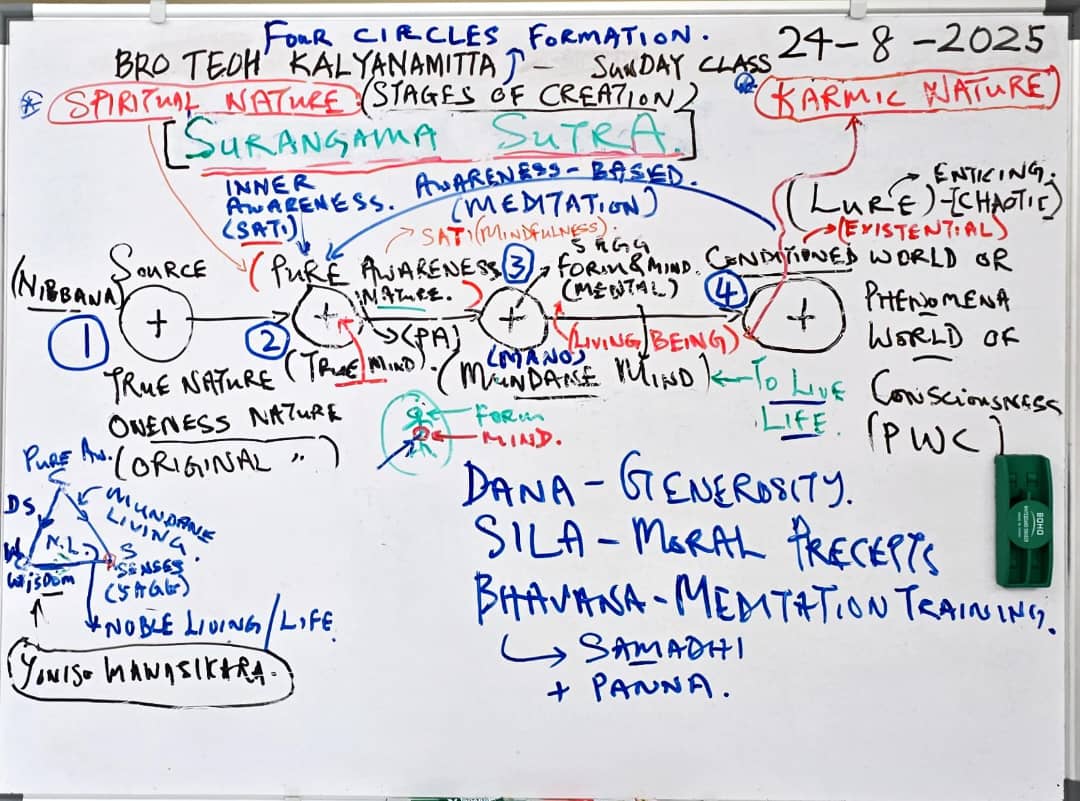 FOUR CIRCLES FORMATION.
24-8-2025
BRO TEOH KALYANAMITTA - SUNDAY CLASS
SPIRITUAL NATURE: (STAGES OF CREATION)
(KARMIC NATURE)
[SURANGAMA SUTRA.]
INNER
AWARENESS.
(SATI)
AWARENESS-BASED.
(MEDITATION)
→ ENTICING.
(LURE)-[CHAOTIC]
→(EXISTENTIAL)
→ SATI(MINDFULNESS).
(NIBBANA)
SOURCE
(PURE AWARENESS
NATURE.)
③
5 AGG
FORM & MIND.
(MENTAL)
CONDITIONED WORLD OR
PHENOMENA
WORLD OF
CONSCIOUSNESS
[PWC]
①
+
②
+
→(PA)
+
(MANO)
(LIVING BEING)
④
+
TRUE NATURE
ONENESS NATURE
(ORIGINAL ")
(TRUE MIND).
(MUNDANE MIND) ← TO LIVE
LIFE.
← FORM
← MIND.
PURE AW.
DS
MUNDANE
LIVING.
W
N.L.
S
SENSES
(5 AGG)
WISDOM
NOBLE LIVING/LIFE.
YONISO MANASIKARA.
DANA - GENEROSITY.
SILA - MORAL PRECEPTS
BHAVANA - MEDITATION TRAINING.
↳ SAMADHI
+ PANNA.